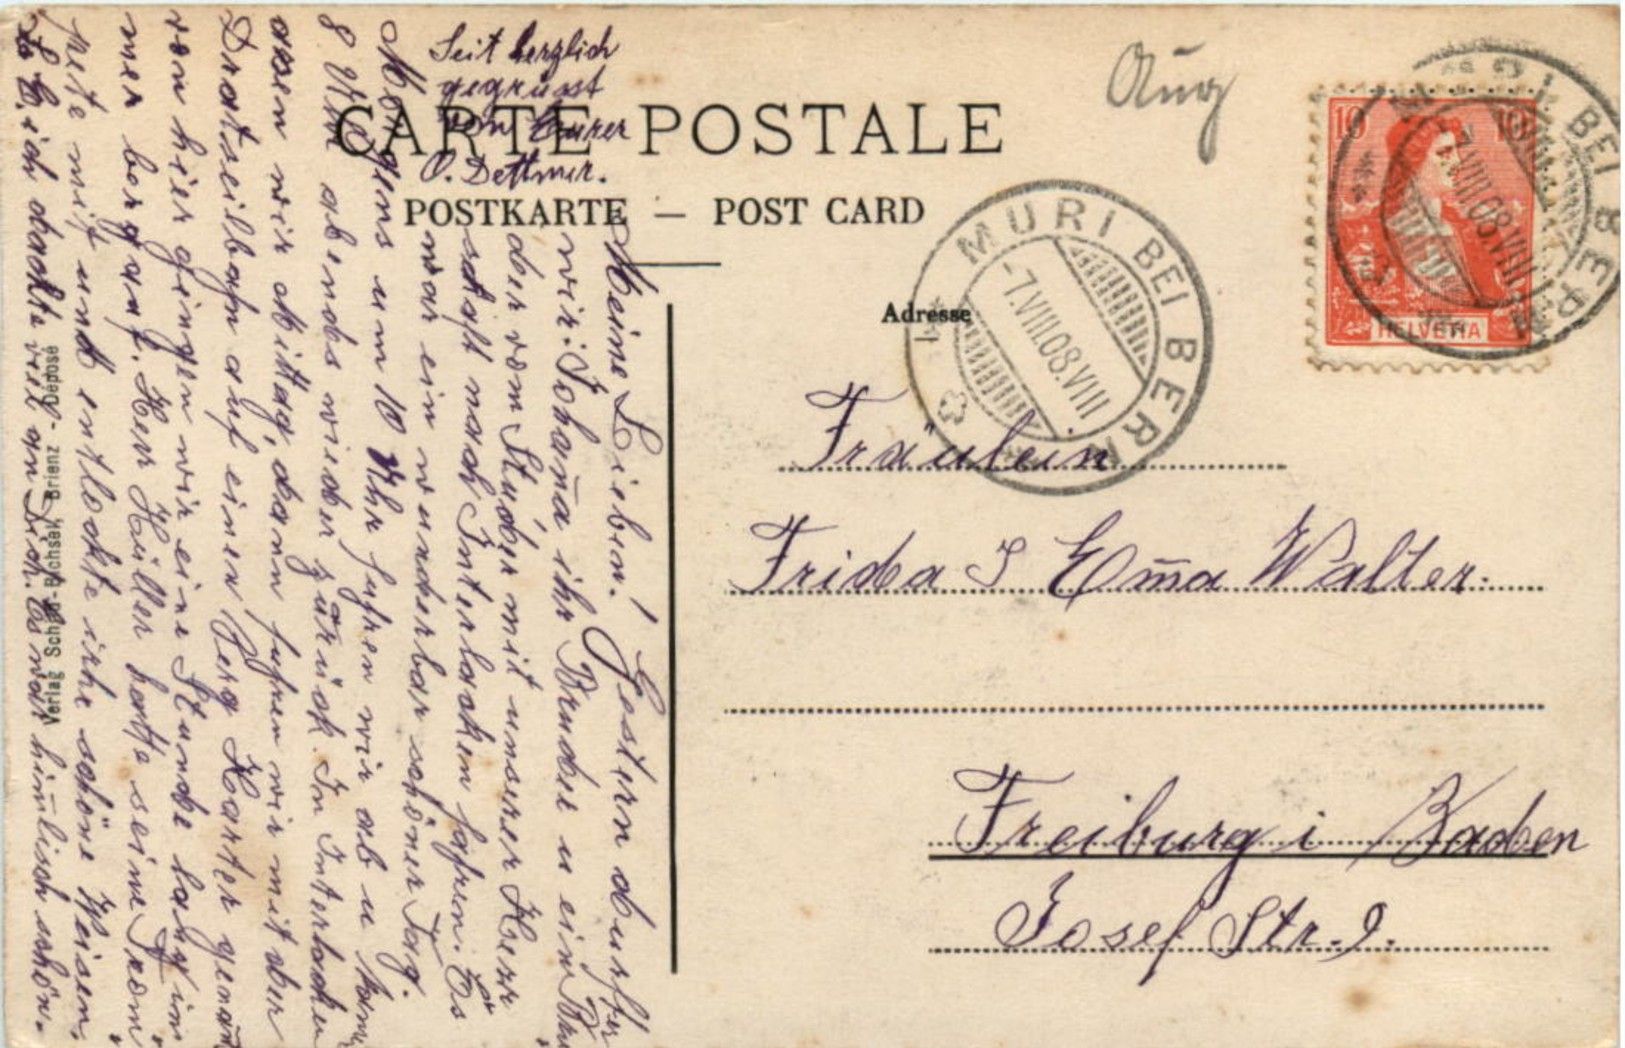 Aug
Seit herzlich
gegrüsst
vom Eurer
O. Dettmer.
CARTE POSTALE
POSTKARTE — POST CARD
Adresse
MURI BEI BERN
-7.VIII.08.VIII
10 10
HELVETIA
MURI BEI BERN
7.VIII.08.VIII
Fräulein
Frida & Em̄a Walter.
Freiburg i Baden
Josef Str. 9.
Meine Lieben! Gestern durften
wir: Joham̄a ihr Bruder u ein
der vom Stuber mit unserer Herr
schaft nach Interlaken fahren. Es
war ein wunderbar schöner Tag.
Morgens um 10 Uhr fuhren wir ab u kamen
8 Uhr abends wieder zurück. In Interlaken
assen wir Mittag, dann fuhren wir mit der
Dratseilbahn auf einen Berg Harter genan̄t
von hier gingen wir eine Stunde lang im̄
mer bergauf. Herr Hüller hatte seine Trom
pete mit und entlockte ihr schöne Weisen.
L. E. ich dachte viel an Dich. Es war him̄lisch schön.
Verlag Schild-Bichsel, Brienz - Déposé